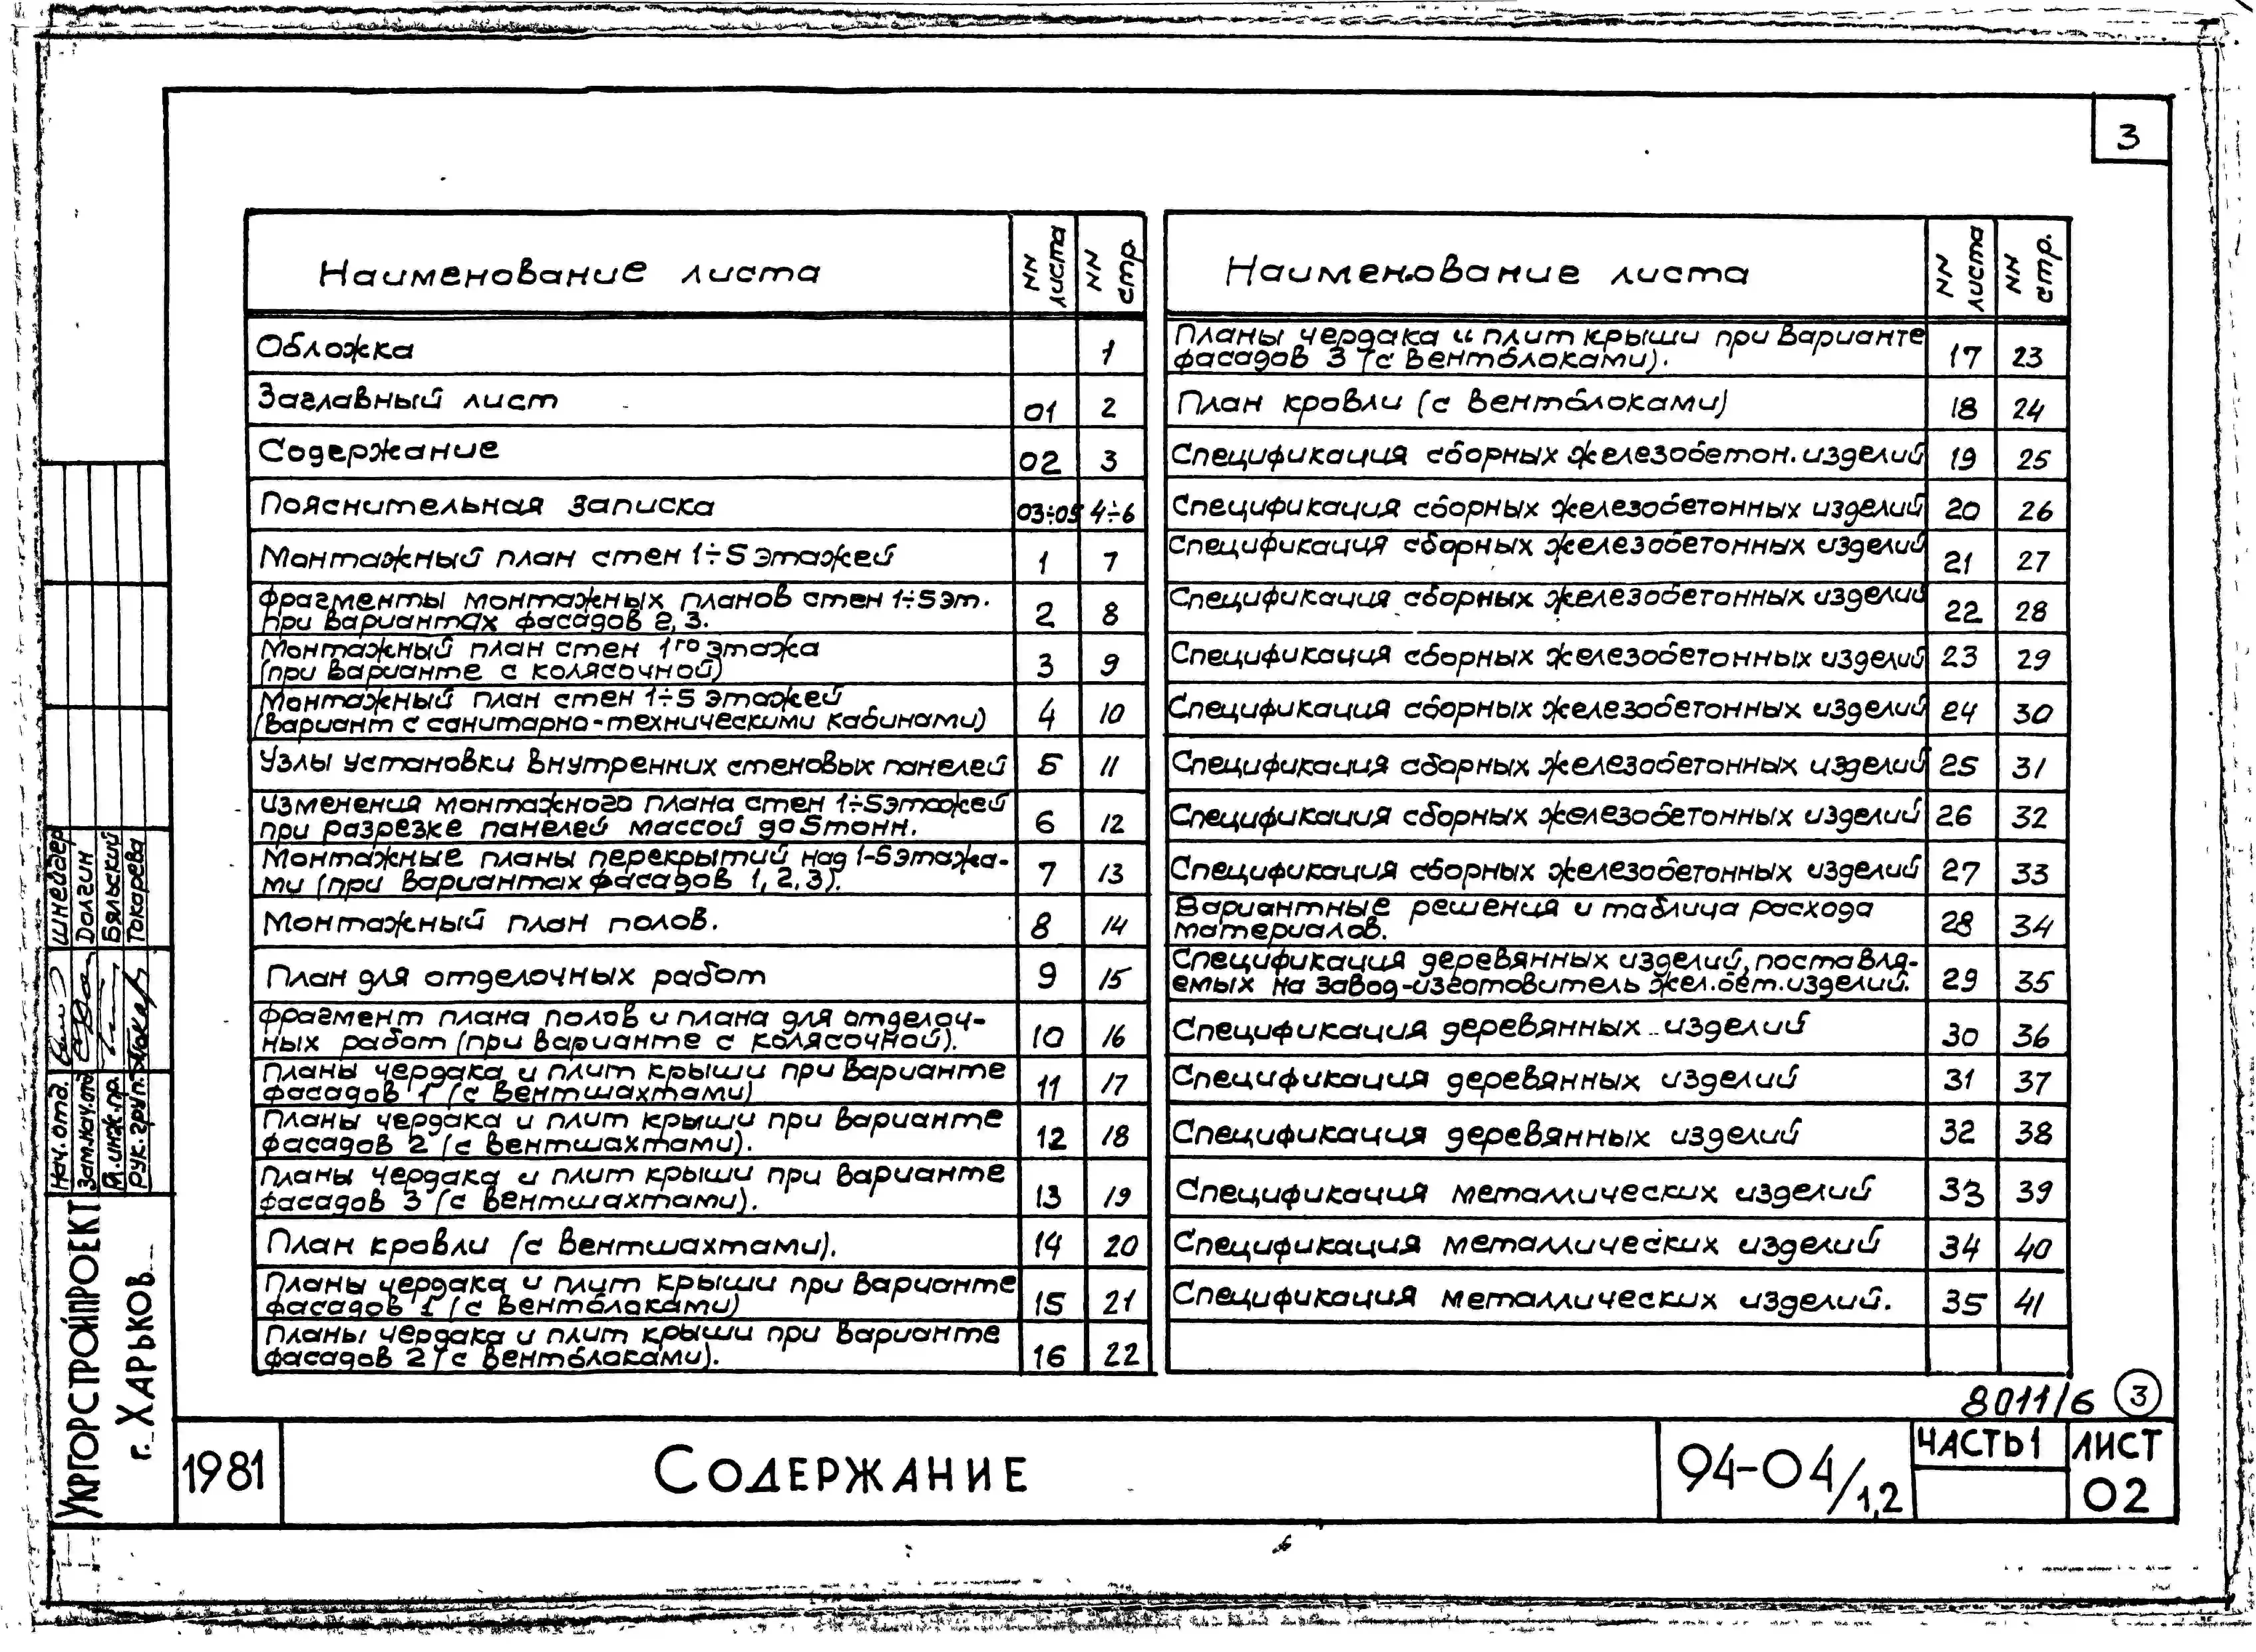 3
Наименование листа NN листа NN стр.
Обложка 1
Заглавный лист 01 2
Содержание 02 3
Пояснительная записка 03÷05 4÷6
Монтажный план стен 1÷5 этажей 1 7
Фрагменты монтажных планов стен 1÷5 эт.
при вариантах фасадов 2, 3. 2 8
Монтажный план стен 1го этажа
(при варианте с колясочной) 3 9
Монтажный план стен 1÷5 этажей
(вариант с санитарно-техническими кабинами) 4 10
Узлы установки внутренних стеновых панелей 5 11
Изменения монтажного плана стен 1÷5этажей
при разрезке панелей массой до 5тонн. 6 12
Монтажные планы перекрытий над 1-5этажа-
ми (при вариантах фасадов 1, 2, 3). 7 13
Монтажный план полов. 8 14
План для отделочных работ 9 15
Фрагмент плана полов и плана для отделоч-
ных работ (при варианте с колясочной). 10 16
Планы чердака и плит крыши при варианте
фасадов 1 (с вентшахтами) 11 17
Планы чердака и плит крыши при варианте
фасадов 2 (с вентшахтами). 12 18
Планы чердака и плит крыши при варианте
фасадов 3 (с вентшахтами). 13 19
План кровли (с вентшахтами). 14 20
Планы чердака и плит крыши при варианте
фасадов 1 (с вентблоками) 15 21
Планы чердака и плит крыши при варианте
фасадов 2 (с вентблоками). 16 22
Наименование листа NN листа NN стр.
Планы чердака и плит крыши при варианте
фасадов 3 (с вентблоками). 17 23
План кровли (с вентблоками) 18 24
Спецификация сборных железобетон. изделий 19 25
Спецификация сборных железобетонных изделий 20 26
Спецификация сборных железобетонных изделий 21 27
Спецификация сборных железобетонных изделий 22 28
Спецификация сборных железобетонных изделий 23 29
Спецификация сборных железобетонных изделий 24 30
Спецификация сборных железобетонных изделий 25 31
Спецификация сборных железобетонных изделий 26 32
Спецификация сборных железобетонных изделий 27 33
Вариантные решения и таблица расхода
материалов. 28 34
Спецификация деревянных изделий, поставля-
емых на завод-изготовитель жел.бет.изделий. 29 35
Спецификация деревянных изделий 30 36
Спецификация деревянных изделий 31 37
Спецификация деревянных изделий 32 38
Спецификация металлических изделий 33 39
Спецификация металлических изделий 34 40
Спецификация металлических изделий. 35 41
8011/6 3
Нач. отд. Шнейдер
Зам.нач.отд Долгин
Гл.инж.пр. Бяльский
Рук. груп. Токарева
УКРГОРСТРОЙПРОЕКТ
г. ХАРЬКОВ
1981
СОДЕРЖАНИЕ
94-04/1,2
ЧАСТЬ 1
ЛИСТ
02